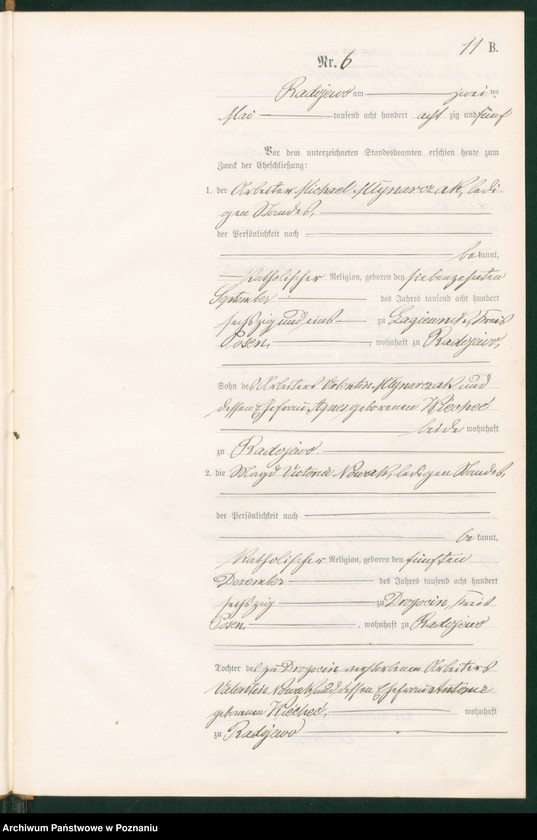 11 B.
Nr. 6
Radojewo am zwei ten
Mai tausend acht hundert acht zig und fünf
Vor dem unterzeichneten Standesbeamten erschien heute zum
Zweck der Eheschließung:
1. der Arbeiter Michael Mlynarczak, ledi-
gen Standes,
der Persönlichkeit nach
be kannt,
Katholischer Religion, geboren den siebenzehnten
September des Jahres tausend acht hundert
sechszig und eins zu Lagiewnik, Kreis
Posen, wohnhaft zu Radojewo,
Sohn des Arbeiters Valentin Mlynarczak und
dessen Ehefrau Agnes geborenen Wieched
beide wohnhaft
zu Radojewo
2. die Magd Victoria Nowak, ledigen Standes,
der Persönlichkeit nach
be kannt,
Katholischer Religion, geboren den fünften
Dezember des Jahres tausend acht hundert
sechszig zu Drogocin, Kreis
Posen, wohnhaft zu Radojewo
Tochter des zu Drogocin verstorbenen Arbeiters
Valentin Nowak und dessen Ehefrau
geborenen Wieched, wohnhaft
zu Radojewo
Archiwum Państwowe w Poznaniu